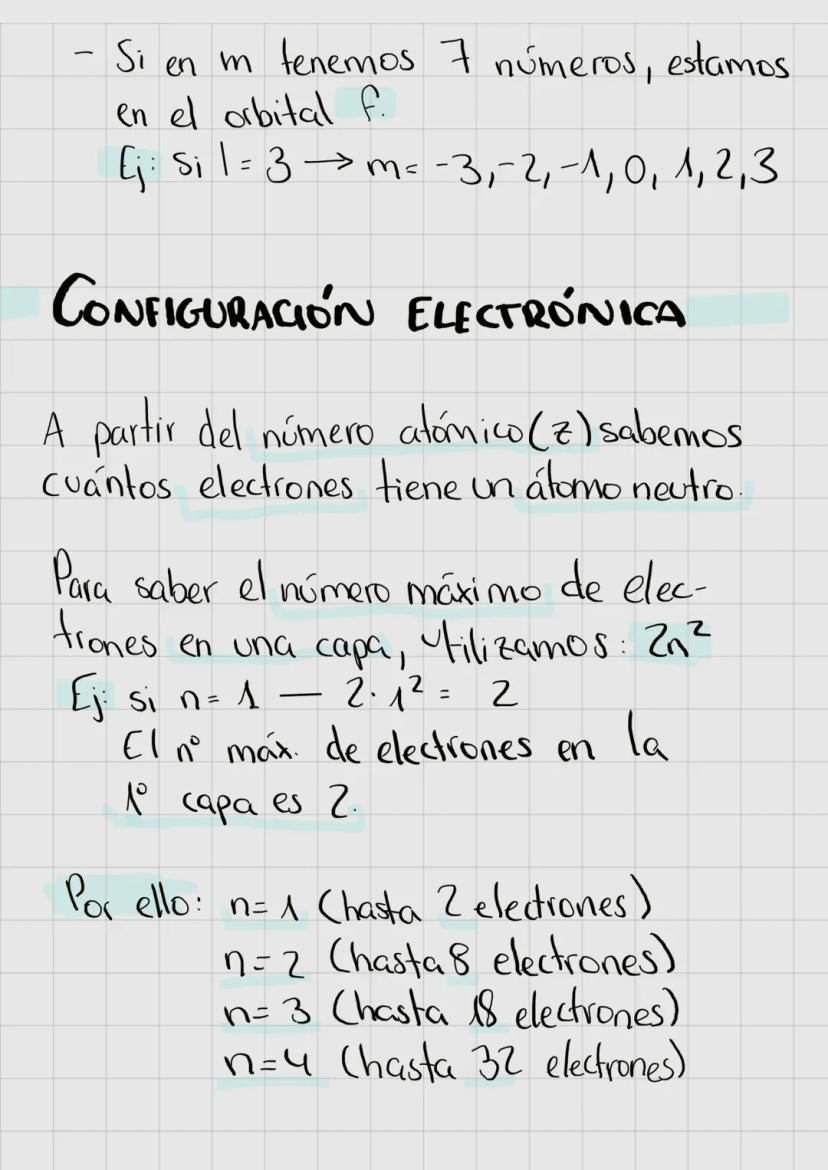 - Si en m tenemos 7 números, estamos
en el orbital f.
Ej: si l = 3 → m= -3, -2, -1, 0, 1, 2, 3
CONFIGURACIÓN ELECTRÓNICA
A partir del número atómico (z) sabemos
cuántos electrones tiene un átomo neutro.
Para saber el número máximo de elec-
trones en una capa, utilizamos: 2n²
Ej: si n= 1 — 2·1² = 2
El nº máx. de electrones en la
1º capa es 2.
Por ello: n= 1 (hasta 2 electrones)
n= 2 (hasta 8 electrones)
n= 3 (hasta 18 electrones)
n=4 (hasta 32 electrones)